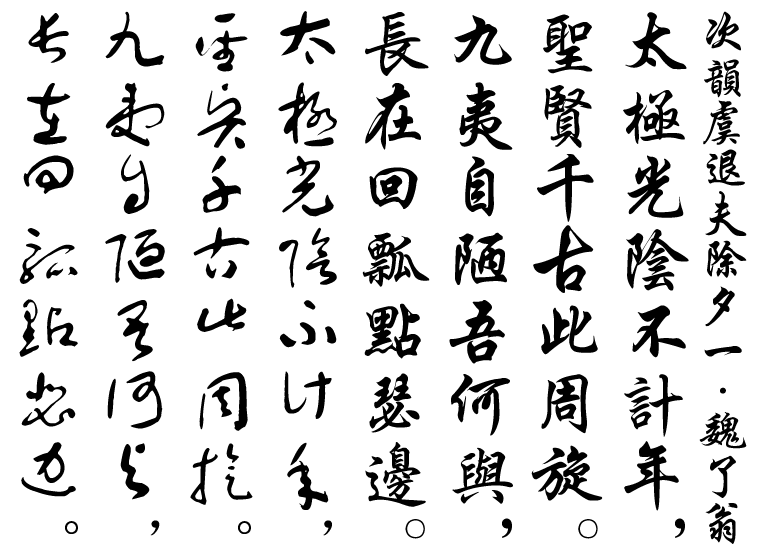 次韻虞退夫除夕一·魏了翁
太極光陰不計年，
聖賢千古此周旋。
九夷自陋吾何與，
長在回瓢點瑟邊。
太極光陰不計年，
聖賢千古此周旋。
九夷自陋吾何與，
長在回瓢點瑟邊。